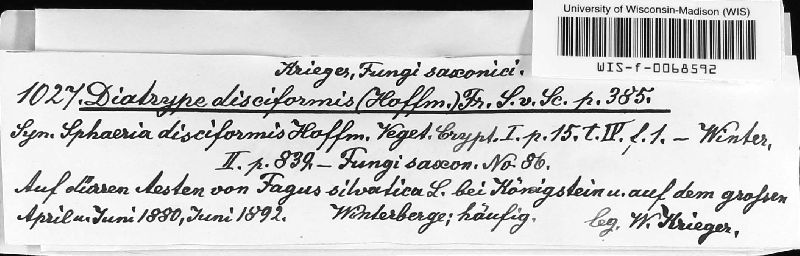 University of Wisconsin-Madison (WIS)
WIS-f-0068592
Krieger, Fungi saxonici.
1027. Diatrype disciformis (Hoffm.) Fr. S. v. Sc. p. 385.
Syn. Sphaeria disciformis Hoffm. Veget. Crypt. I. p. 15. t. IV. f. 1. – Winter,
II. p. 839. – Fungi saxon. No. 86.
Auf dürren Aesten von Fagus silvatica L. bei Königstein u. auf dem grossen
April u. Juni 1880, Juni 1892. Winterberge; häufig. leg. W. Krieger.